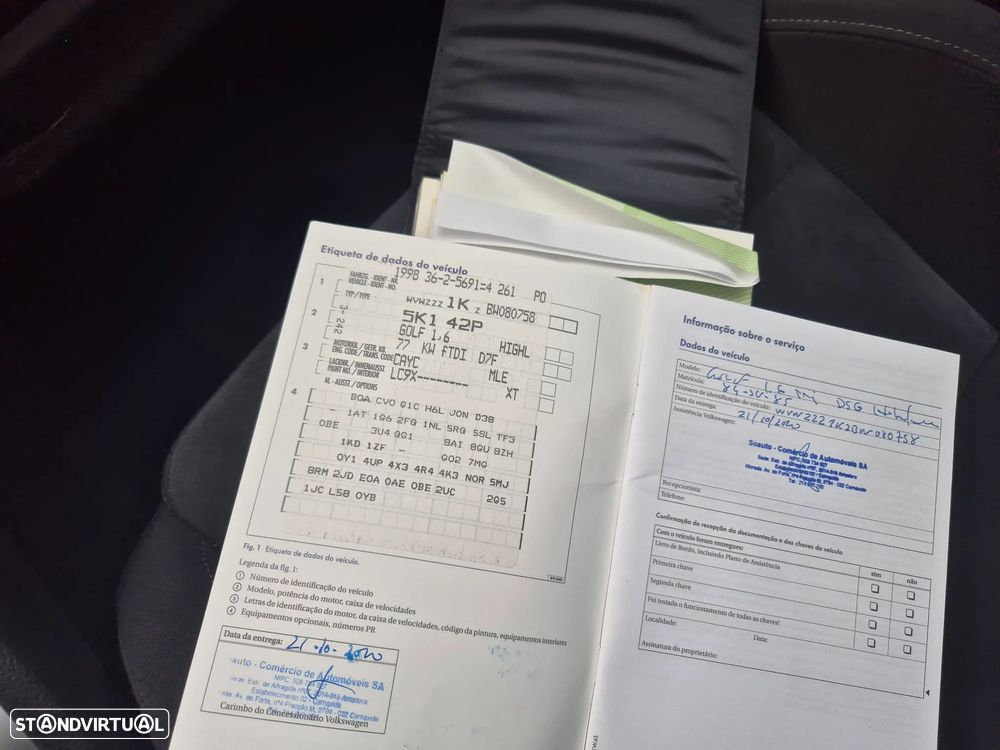 Etiqueta de dados do veículo
FAHRZG.-IDENT-NR. 1998 36-2-5691=4 261 PO
VEHICLE-IDENT-NO.
1
WVWZZZ 1K Z BW080758
TYP/TYPE
2
3- 242
5K1 42P
GOLF 1.6 HIGHL
77 KW fTDI D7F
3
MOTORKB./GETR. KB.
ENG. CODE/TRANS. CODE CAYC MLE
LACKNR./INNENAUSST.
PAINT NO./INTERIOR LC9X-------- XT
M.-AUSST./OPTIONS
4
BOA CVO G1C H6L JON D3B
- 1AT 1G6 2FG 1NL 5RG 5SL TF3
OBE 3U4 GG1 8AI 8GU 8ZH
1KD 1ZF - GO2 7MG
OY1 4UP 4X3 4R4 4K3 NOR 5MJ
BRM 2JD EOA OAE OBE 2UC 2G5
1JC L5B OYB
Fig. 1 Etiqueta de dados do veículo.
Legenda da fig. 1:
1 Número de identificação do veículo
2 Modelo, potência do motor, caixa de velocidades
3 Letras de identificação do motor, da caixa de velocidades, código da pintura, equipamentos interiores
4 Equipamentos opcionais, números PR
Data da entrega: 21-10-2020
auto - Comércio de Automóveis SA
Estabelecimento 02 - Carnaxide
Carimbo do Concessionário Volkswagen
Informação sobre o serviço
Dados do veículo
Modelo: Golf 1.6 TDI DSG
Matrícula:
Número de identificação do veículo: WVWZZZ1KZBW080758
Data da entrega: 21/10/2020
Assistência Volkswagen:
Soauto - Comércio de Automóveis SA
Estabelecimento 02 - Carnaxide
Recepcionista:
Telefone:
Confirmação de recepção da documentação e das chaves do veículo
Com o veículo foram entregues: sim não
Livro de Bordo, incluindo Plano de Assistência
Primeira chave
Segunda chave
Foi testado o funcionamento de todas as chaves!
Localidade: Data:
Assinatura do proprietário:
STANDVIRTUAL